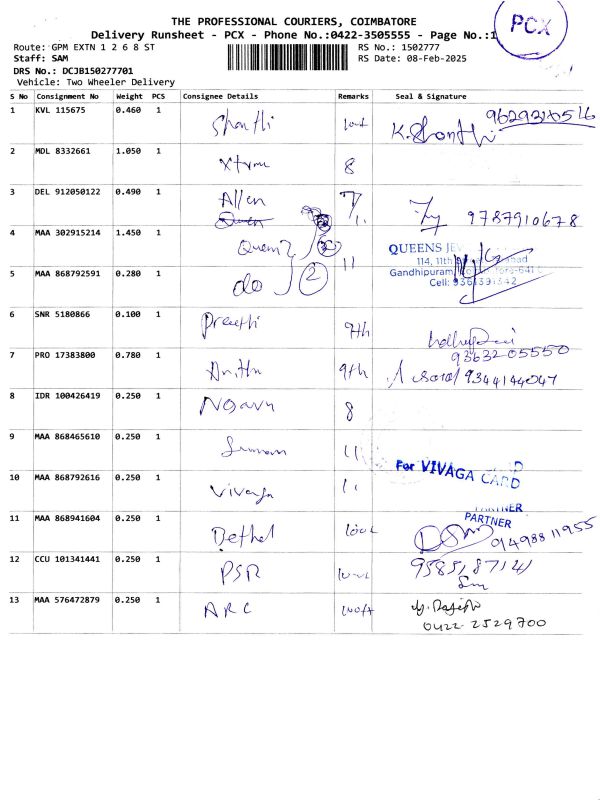 THE PROFESSIONAL COURIERS, COIMBATORE
PCX
Delivery Runsheet - PCX - Phone No.:0422-3505555 - Page No.:1
Route: GPM EXTN 1 2 6 8 ST
RS No.: 1502777
Staff: SAM
RS Date: 08-Feb-2025
DRS No.: DCJB150277701
Vehicle: Two Wheeler Delivery
S No Consignment No Weight PCS Consignee Details Remarks Seal & Signature
1 KVL 115675 0.460 1 Shanthi K. Shanthi
2 MDL 8332661 1.050 1 8
3 DEL 912050122 0.490 1 Allen 9787910678
4 MAA 302915214 1.450 1 11 QUEENS
114, 11th
Gandhipuram,
Cell: 9361391342
5 MAA 868792591 0.280 1 do 2
6 SNR 5180866 0.100 1 Preethi 9th
9363205550
7 PRO 17383800 0.780 1 9th 9344144047
8 IDR 100426419 0.250 1 8
9 MAA 868465610 0.250 1 11
10 MAA 868792616 0.250 1 Vivaga For VIVAGA CARD
PARTNER
11 MAA 868941604 0.250 1 Bethel PARTNER
12 CCU 101341441 0.250 1 PSR
13 MAA 576472879 0.250 1 ARC
0422 2529700